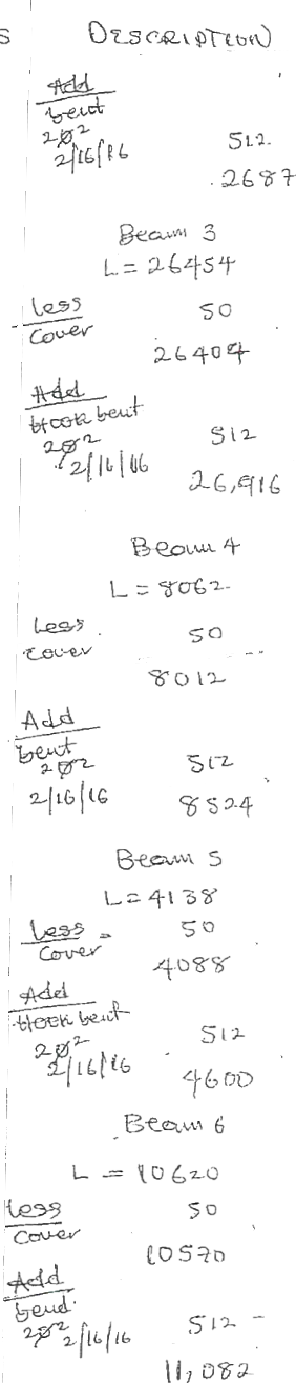 S DESCRIPTION
Add
bent
2/2/16/16 512.
2687
Beam 3
L = 26454
less 50
Cover
26404
Add
Hook bent
2/2/16/16 512
26,916
Beam 4
L = 8062
Less 50
cover
8012
Add
bent
2/2/16/16 512
8524
Beam 5
L = 4138
Less 50
Cover
4088
Add
Hook bent
2/2/16/16 512
4600
Beam 6
L = 10620
less 50
Cover
10570
Add
bend
2/2/16/16 512
11,082